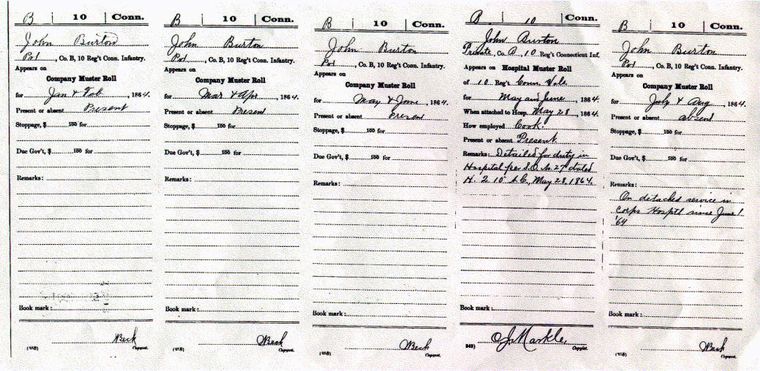 B 10 Conn.
John Burton
Pvt, Co. B, 10 Reg't Conn. Infantry.
Appears on
Company Muster Roll
for Jan & Feb, 1864.
Present or absent Present
Stoppage, $ 100 for
Due Gov't, $ 100 for
Remarks:
Book mark:
Beck
(358) Copyist.
B 10 Conn.
John Burton
Pvt, Co. B, 10 Reg't Conn. Infantry.
Appears on
Company Muster Roll
for Mar & Apr, 1864.
Present or absent Present
Stoppage, $ 100 for
Due Gov't, $ 100 for
Remarks:
Book mark:
Beck
(358) Copyist.
B 10 Conn.
John Burton
Pvt, Co. B, 10 Reg't Conn. Infantry.
Appears on
Company Muster Roll
for May & June, 1864.
Present or absent Present
Stoppage, $ 100 for
Due Gov't, $ 100 for
Remarks:
Book mark:
Beck
(358) Copyist.
10 Conn.
John Burton
Private, Co. B, 10 Reg't Connecticut Inf.
Appears on Hospital Muster Roll
of 10 Reg't Conn. Vols
for May and June, 1864.
When attached to Hosp. May 28, 1864.
How employed Cook
Present or absent Present
Remarks: Detailed for duty in
Hospital per S.O. No 27 dated
H. 2 10" A.C., May 28, 1864.
Book mark:
Markle
Copyist.
B 10 Conn.
John Burton
Pvt, Co. B, 10 Reg't Conn. Infantry.
Appears on
Company Muster Roll
for July & Aug, 1864.
Present or absent absent
Stoppage, $ 100 for
Due Gov't, $ 100 for
Remarks:
On detached service in
Corps Hospt'l since June 1
'64
Book mark:
Beck
(358) Copyist.